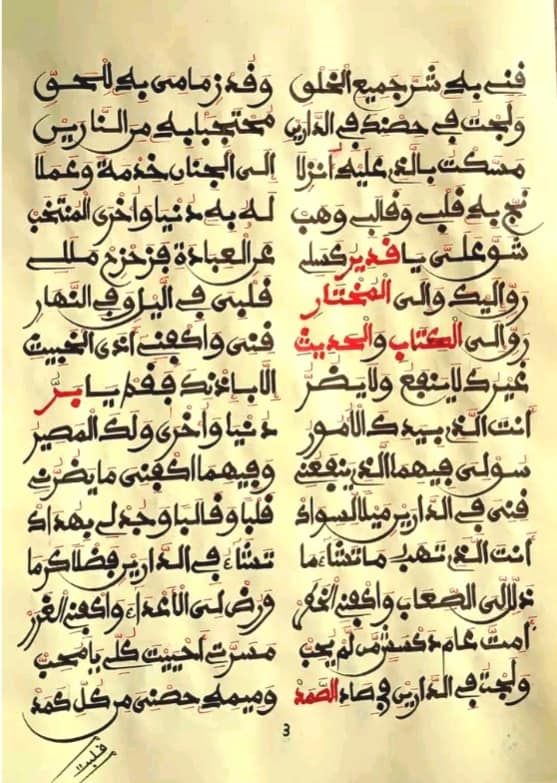 قني به شر جميع الخلق وقد زمامي به للحق
ولجت في حصنك في الدارين محتجبا به من النارين
مسكت بالذي عليه أنزلا إلى الجنان خدمة وعملا
نج به قلبي وقالبي وهب له به دنيا وأخرى المنتخب
شق علي يا قدير كسلي عن العبادة فزحزح مللي
رق إليك وإلى المختار قلبي في اليل وفي النهار
رق إلى الكتاب والحديث قني واكفني أذى الخبيث
غيرك لا ينفع ولا يضر إلا بإذنك فقم يا بر
أنت الذي بيدك الأمور دنيا وأخرى ولك المصير
سولي فيهما الذي ينفعني وفيهما اكفني ما يضرني
قني في الدارين ميلا لسواك قلبا وقالبا وجد لي بهداك
أنت الذي تهب ما تشاء ما تشاء في الدارين فضلا كرما
ذلل لي الصعاب واكفني ورض لي الأعداء واكفني الغرر
أمت عام دكسش من لم يحب مسرتي أحييت كلي يا محب
ولجت في الدارين في صاد الصمد وميمه حصني من كل كمد
3
قلبت